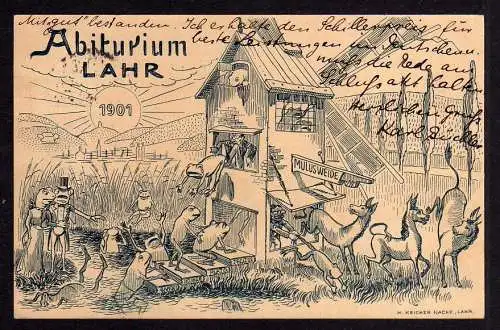 "Mit gut" bestanden. Ich erhalte den Schillerpreis für
beste Leistungen im Deutschen,
muß die Rede am
Schlußakt halten
Herzlichen Gruß
Karl
Abiturium
LAHR
1901
MULUSWEIDE
H. KEICHER NACHF., LAHR.